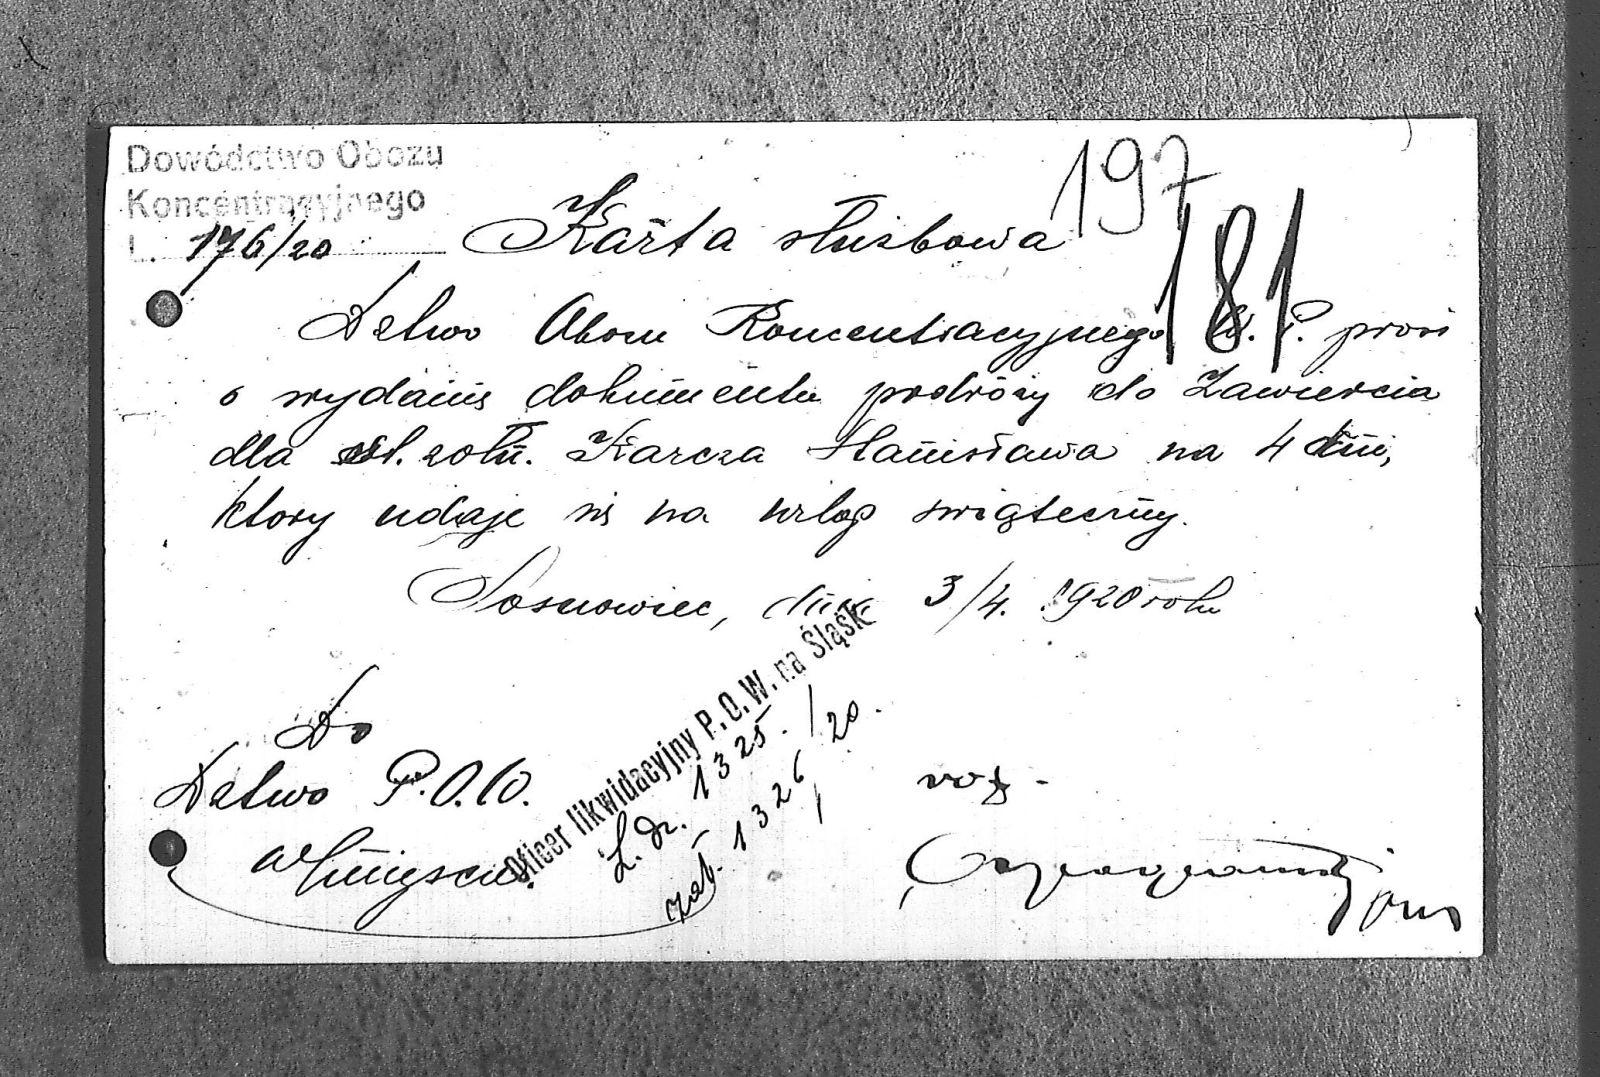 Dowództwo Obozu
Koncentracyjnego
L. 176/20
197
181
Karta służbowa
Dztwo Obozu Koncentracyjnego W. P. prosi
o wydanie dokumentu podróży do Zawiercia
dla st. żołn. Karcza Stanisława na 4 dni,
który udaje się na urlop świąteczny.
Sosnowiec, dnia 3/4. 1920 roku
Do
Dztwo P.O.W.
w miejscu.
Oficer likwidacyjny P.O.W. na Śląsk
L. dz. 1325./
1326/20.